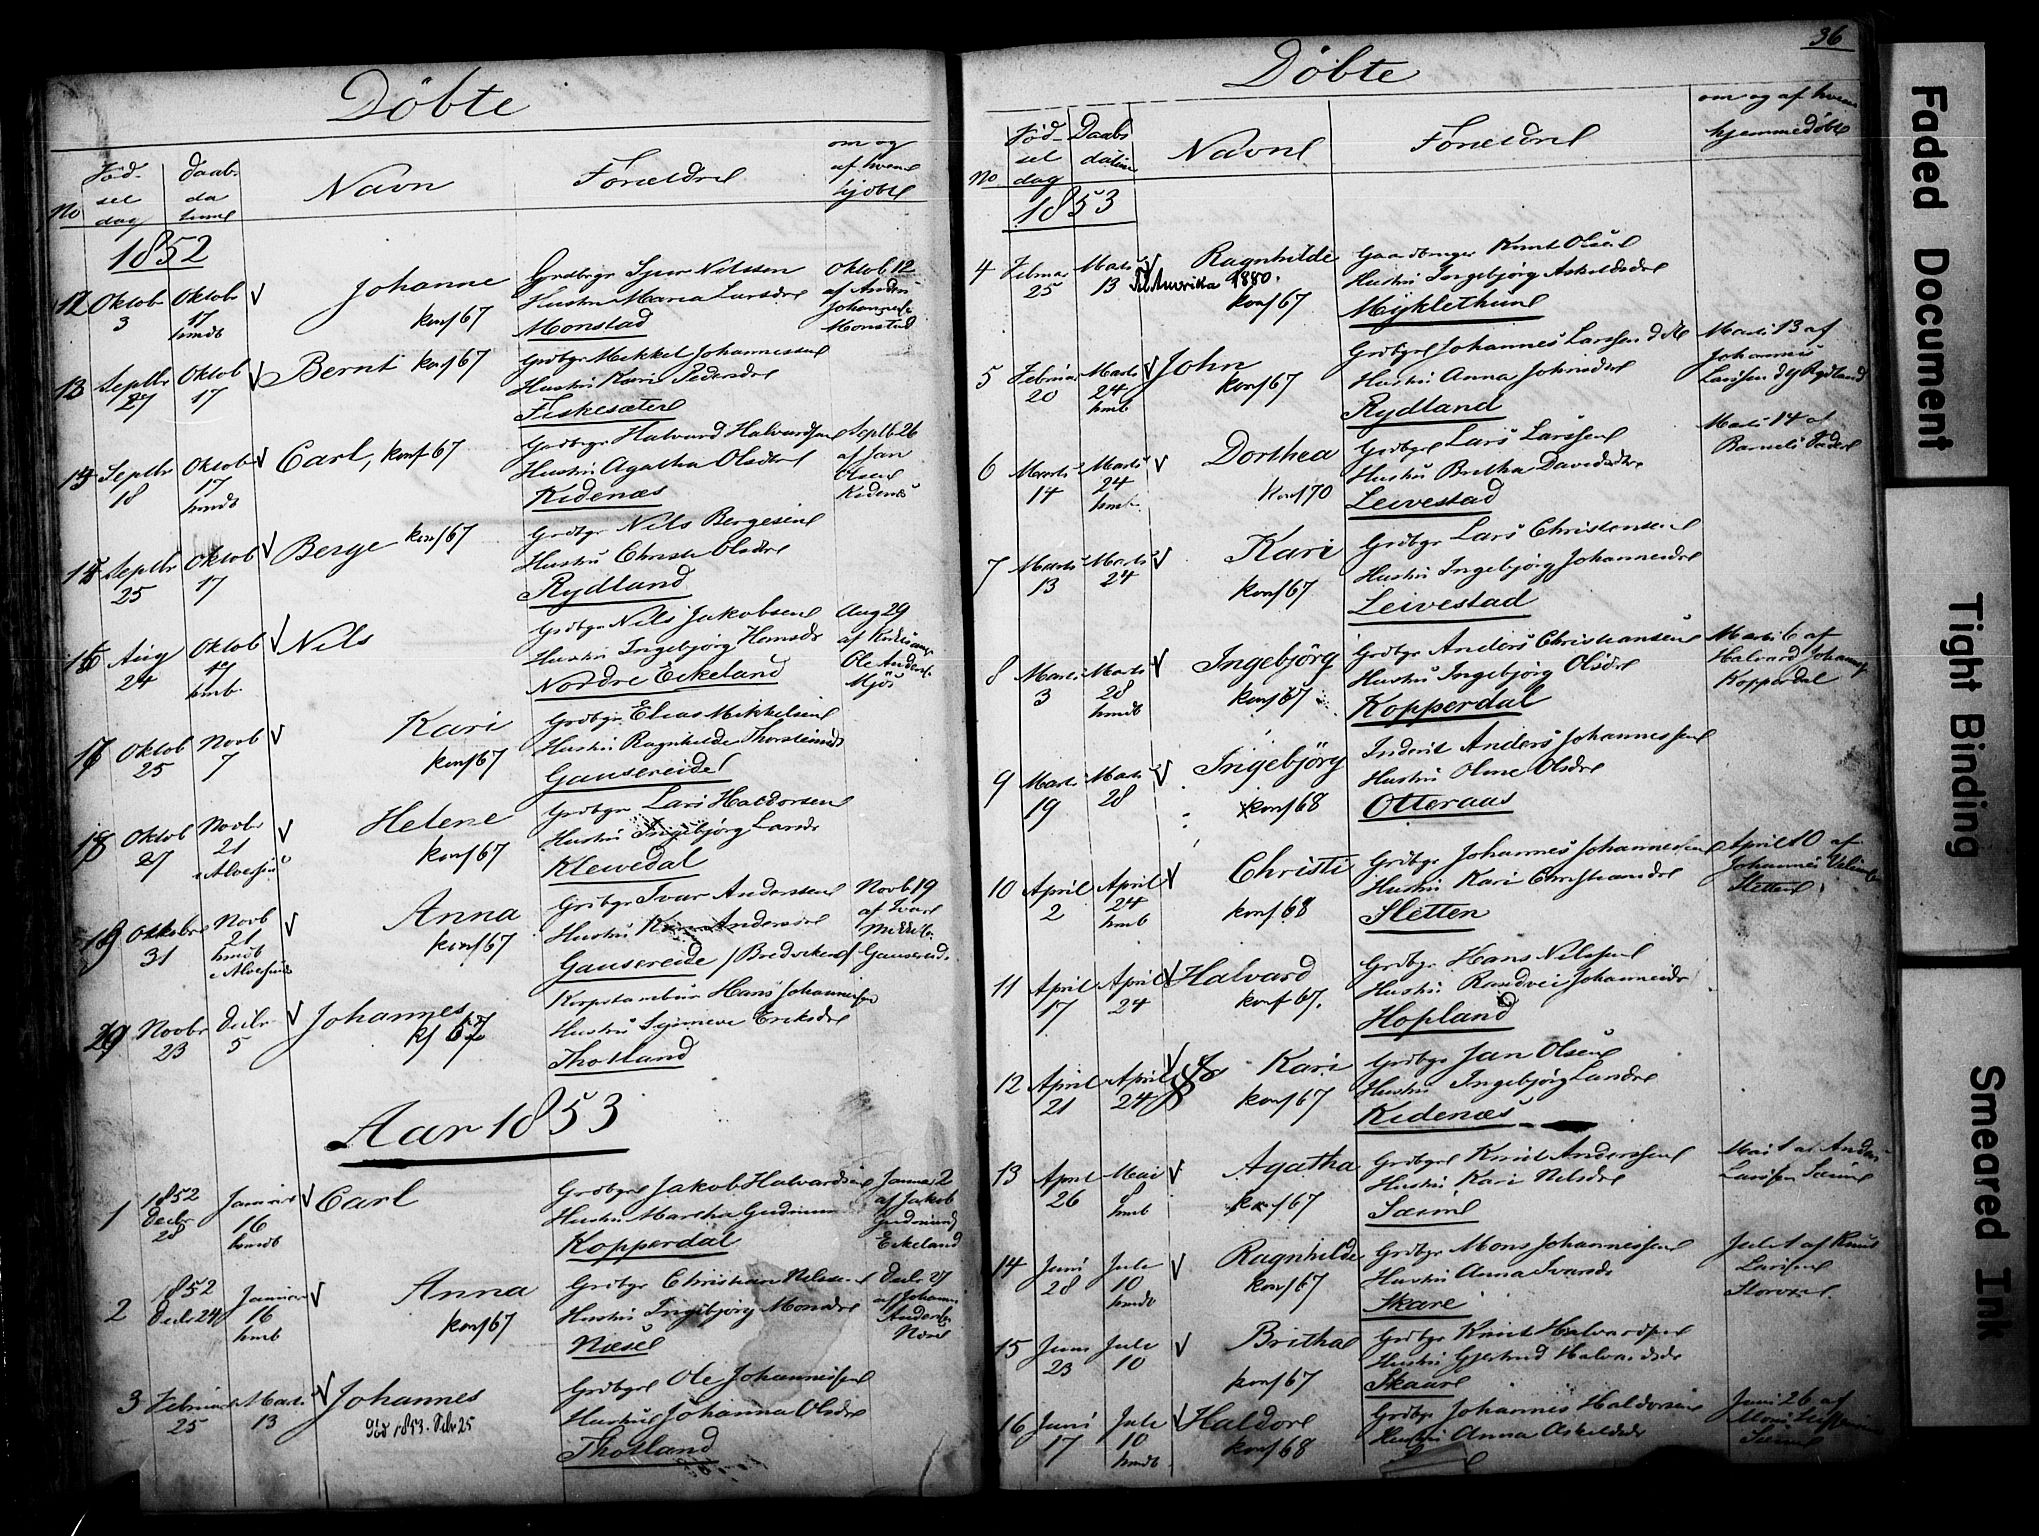 Döbte
No
Föd-
sel
dag
Daab
da
Navn
Forældre
om og
af hvem
hjdbt
1852
12 Oktob 3
Oktob 17 hmdb
Johanne
konf 67
Grdbrgr Iver Nilssen
Hustru Maria Larsdre
Monstad
Oktob 12
af Anders
Johannes
Monstad
13 Septbr 27
Oktob 17
Bernt konf 67
Grdbgr Mekkel Johannessen
Hustru Kari Pedersdre
Fiskesæter
14 Septbr 18
Oktob 17 hmdb
Carl, konf 67
Grdbgr Halvard Halvardsen
Hustru Agatha Olsdre
Kidenæs
Septb 26
af Jan
Olsen
Kidenæs
15 Septbr 25
Oktob 17
Berge konf 67
Grdbgr Nils Bergesen
Hustru Christi Olsdre
Rydland
16 Aug 24
Oktob 17 hmb.
Nils
Grdbgr Nils Jakobsen
Hustru Ingebjörg Hansdr
Nordre Eikeland
Aug 29
af
Ole Anders
Mjös
17 Oktob 25
Novb 7
Kari
konf 67
Grdbgr Elias Mikkelsen
Hustru Ragnhilde Thorsteinsd
Gausereidel
18 Oktob 27
Novbr 21
i Alversund
Helene
konf 67
Grdbgr Lars Haldorsen
Hustru Ingebjörg Larsdr
Klevedal
19 Oktober 31
Novb 21 hmdb
i Alversund
Anna
konf 67
Grdbgr Ivar Anderssen
Hustru Kari Andersdre
Gausereide / Bredviken
Novb 19
af Ivar
Mikkels.
Gausereid
20 Novbr 23
Decbr 5
Johannes
kf 67
Hans Johannessen
Hustru Synneve Eriksdre
Thotland
Aar 1853
1 1852 Decbr 28
Januar 16 hmdb
Carl
Grdbgr Jakob Halvardsen
Hustru Martha Gudmun
Kopperdal
Januar 2
af Jakob
Gudmund
Eikeland
2 1852 Decbr 24
Januar 16 hmb
Anna
konf 67
Grdbgr Christian Nilsen
Hustru Ingebjörg Monsdre
Næsel
Decbr 27
af Johan
Anders
Næsel
3 Februar 25
Marts 13
Johannes
Död 1853. Febr 25
Grdbgr Ole Johannessen
Hustru Johanna Olsdre
Thotland
36
Döbte
No
Föd-
sel
dag
Daabs
datum
Navne
Forældre
om og af hvem
hjemmedöbt
1853
4 Februar 25
Marts 13
Ragnhilde
Til Amerika 1880.
konf 67
Gaardbruger Knut Olsen
Hustru Ingebjörg Askeldsdre
Myklethun
5 Februar 20
Marts 24 hmb
John
konf 67
Grdbgr Johannes Larssen
Hustru Anna Johnsdre
Rydland
Marts 13 af
Johannes
Larssen d y Rydland
6 Marts 14
Marts 24 hmb
Dorthea
konf 70
Grdbgr Lars Larssen
Hustru Britha Davidsdre
Leivestad
Marts 14 af
Barnets Fader
7 Marts 13
Marts 24
Kari
konf 67
Grdbgr Lars Christensen
Hustru Ingebjörg Johannesdre
Leivestad
8 Marts 3
Marts 28 hmdb
Ingebjörg
konf 67
Grdbgr Anders Christiansen
Hustru Ingebjörg Olsdre
Kopperdal
Marts 6 af
Halvard Johannes
Kopperdal
9 Marts 19
Marts 28
Ingebjörg
konf 68
Inderst Anders Johannessen
Hustru Oline Olsdre
Otteraas
10 April 2
April 24 hmb
Christi
konf 68
Grdbgr Johannes Johannesen
Hustru Kari Christiansdre
Sletten
April 10 af
Johannes
Sletten
11 April 17
April 24
Halvard
konf 67.
Grdbgr Hans Nilssen
Hustru Randvei Johannesdr
Hopland
12 April 21
April 24
Kari
konf 67
Grdbgr Jan Olsen
Hustru Ingebjörg Larsdre
Kidenæs
13 April 26
Mai hmb
Agatha
konf 67
Grdbgr Knut Anderssen
Hustru Kari Nilsdre
Sæim
Mai 1 af Anders
Larssen Sæim
14 Juni 28
Jule 10 hmdb
Ragnhilde
konf 67
Grdbgr Mons Johannessen
Hustru Anna Ivarsdr
Skare
Jule 1 af Knut
Larsen
15 Juni 23
Jule 10
Britha
konf 67
Grdbgr Knut Halvardsen
Hustru Gjertrud Halvardsdr
Skaare
16 Juni 17
Jule 10 hmdb
Haldor
konf 68
Grdbgr Johannes Haldorsen
Hustru Anna Askeldsdr
Juni 26 af
Mons
Sæim
Faded Document
Tight Binding
Smeared Ink